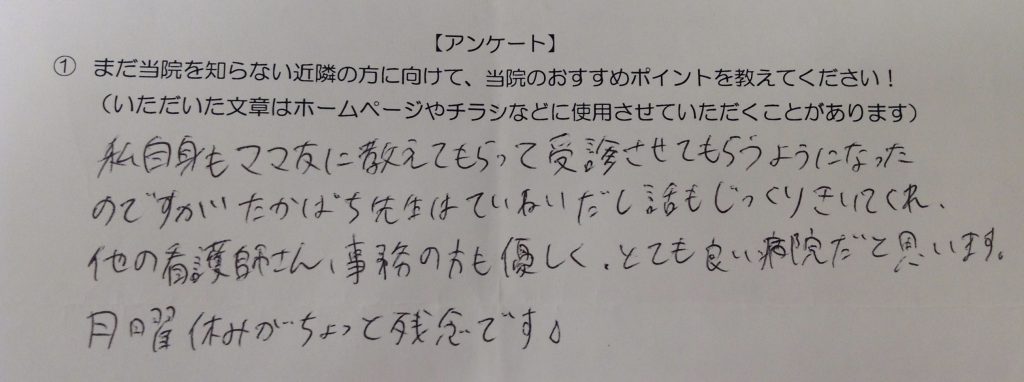 【アンケート】
① まだ当院を知らない近隣の方に向けて、当院のおすすめポイントを教えてください！
（いただいた文章はホームページやチラシなどに使用させていただくことがあります）
私自身もママ友に教えてもらって受診させてもらうようになった
のですが、たかばち先生はていねいだし話もじっくりきいてくれ、
他の看護師さん、事務の方も優しく、とても良い病院だと思います。
月曜休みがちょっと残念です。